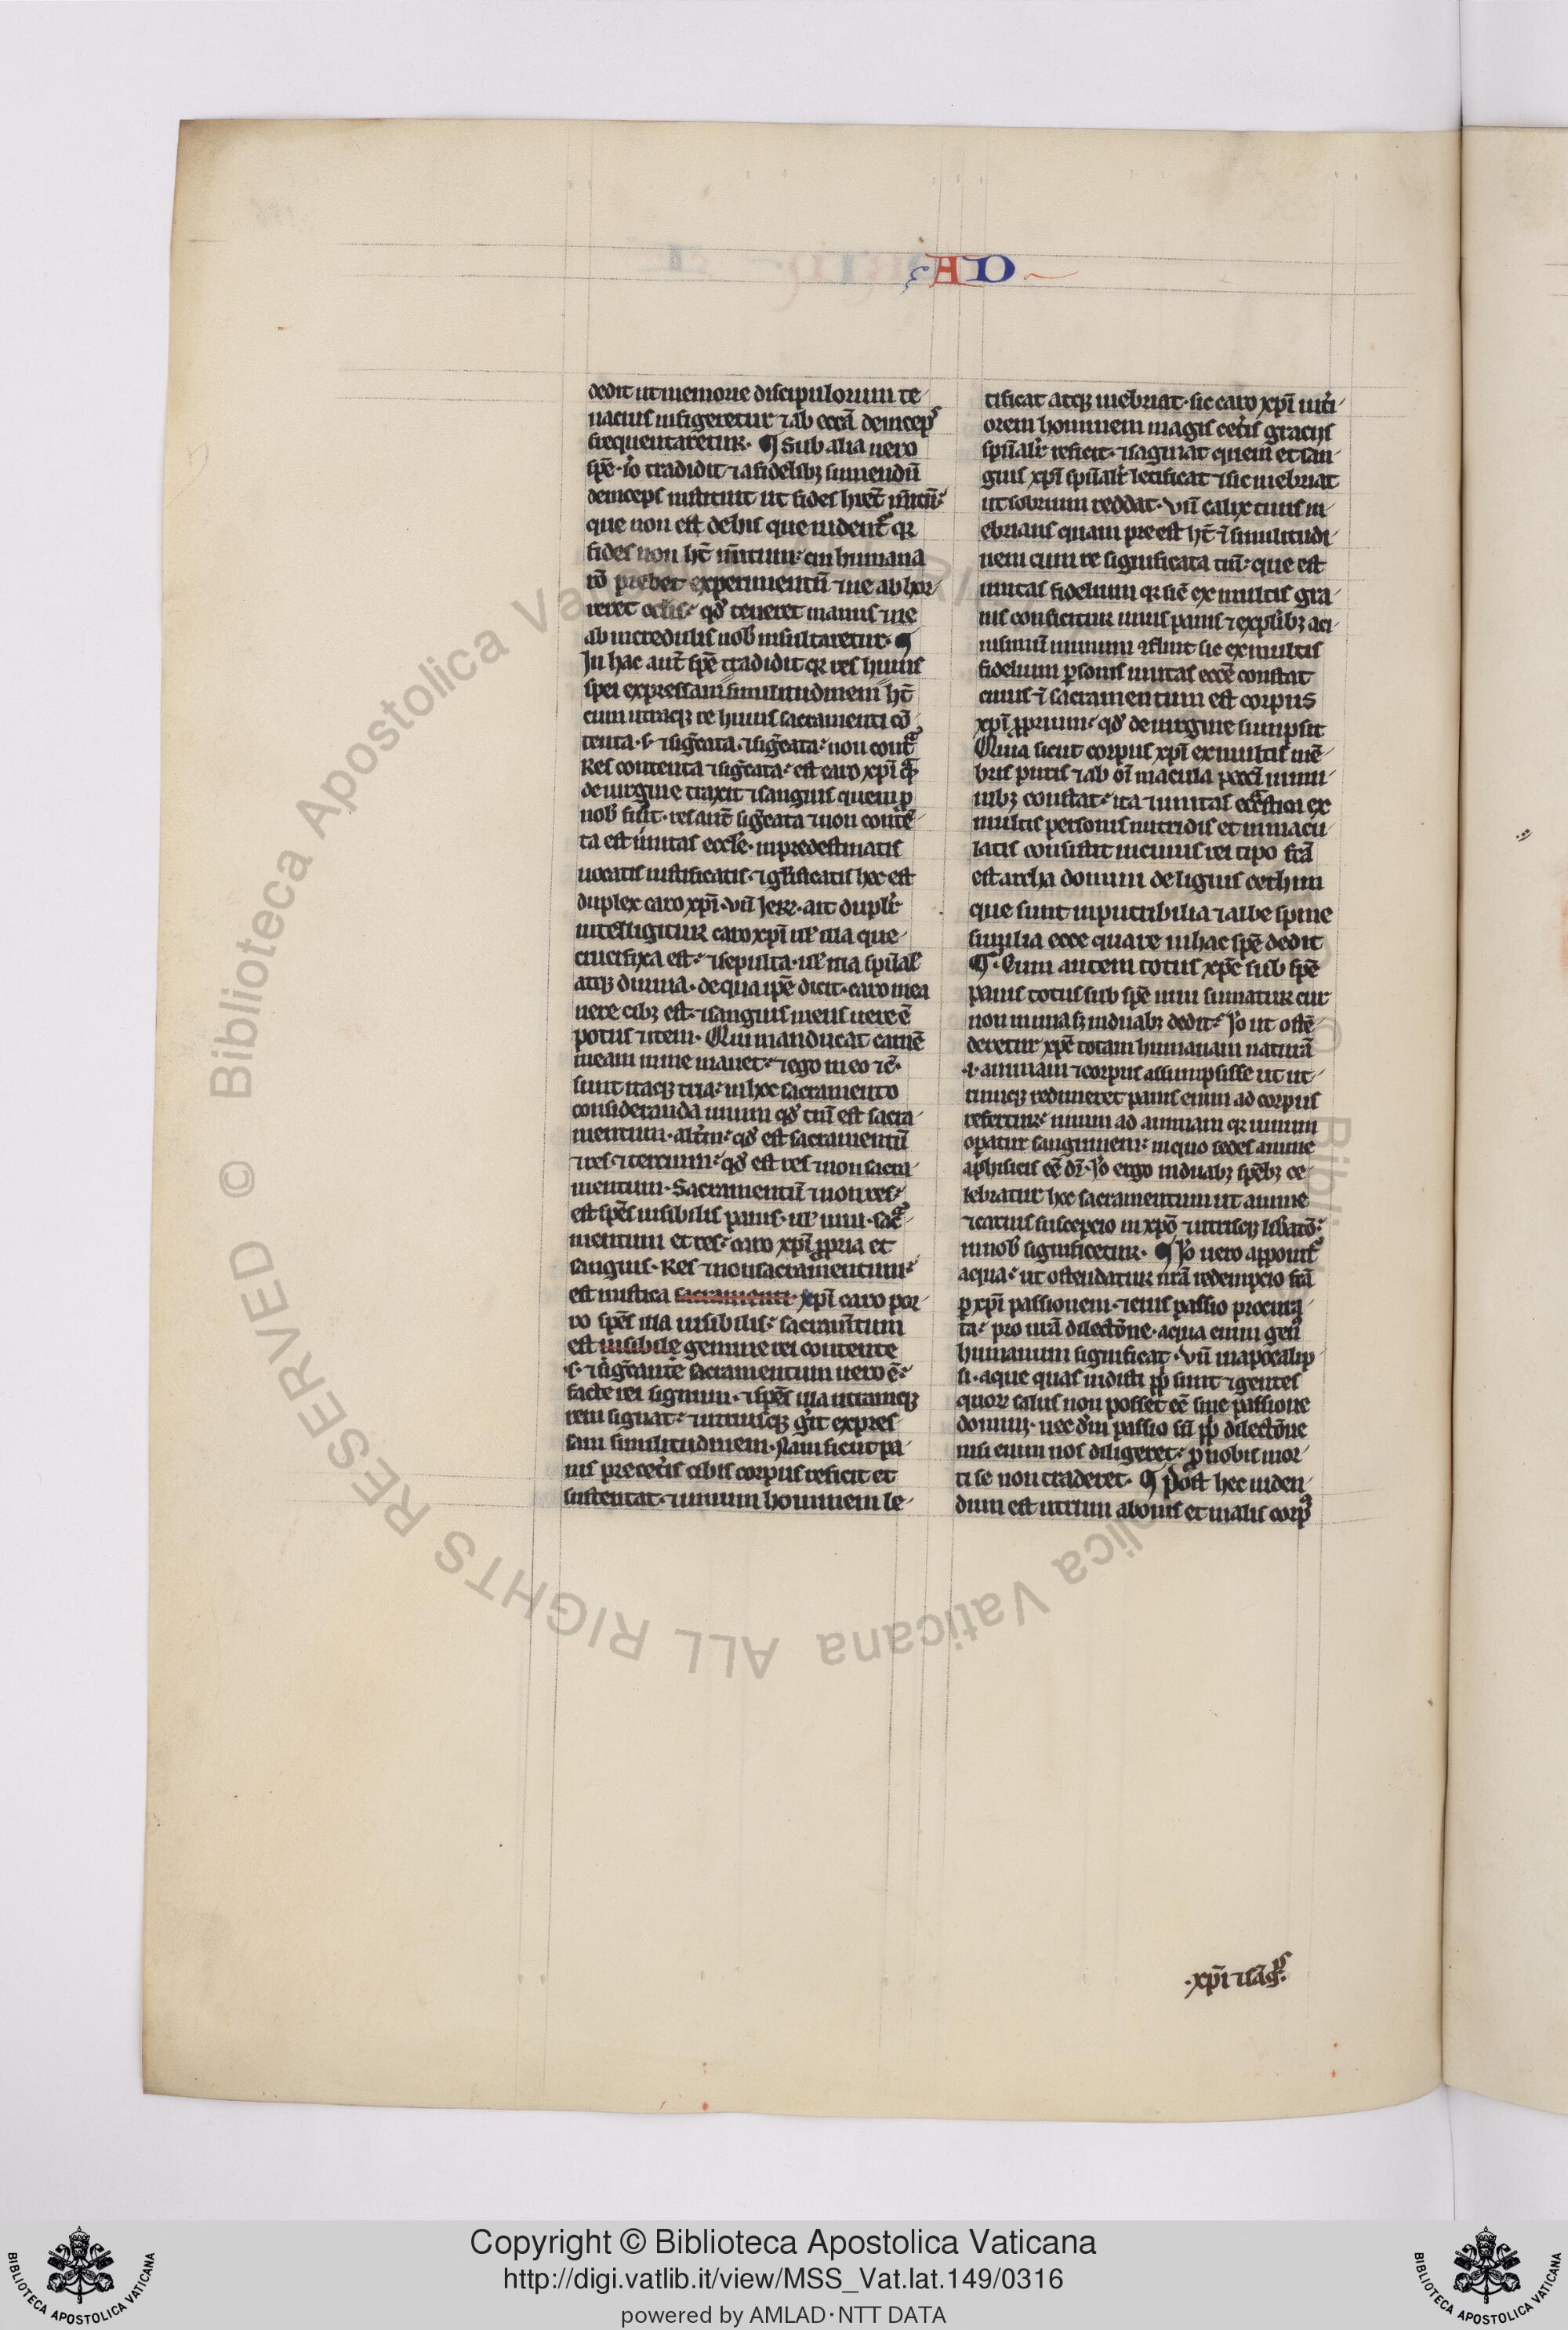 AD
dedit ut memorie discipulorum te
nacius infigeretur ⁊ ab eccā deincepˢ
frequentaretur. ¶ Sub alia uero
spē. io tradidit ⁊ a fidelibꝫ sumendū
deinceps instituit ut fides hr̄et m̄itū:
que non est de hiis que uident᷑ qꝛ
fides non ht̄ m̄itum: cui humana
rō prebet experimentū ⁊ ne ab hor
reret oclis: qd̓ teneret manus ⁊ ne
ab incredulis nob̓ insultaretur. ¶
In hac aut̄ spē tradidit qꝛ res huius
spei expressam similitudinem ht̄
cum utraqꝫ re huius sacramenti cō
tenta. s. ⁊ siḡcata. ⁊ siḡcata: non cont᷑
Res contenta ⁊ siḡcata: est caro xp̄i qᵃ
de uirgine traxit ⁊ sanguis quem ꝑ
nob̓ fudit. res aut̄ siḡcata ⁊ non contē
ta est unitas eccl̄e. in predestinatis
uocatis iustificatis. ⁊ gl̄ificatis hec est
duplex caro xp̄i. vn̄ Jeꝝ. ait duplr̄
intelligitur caro xp̄i ul̄ illa que
crucifixa est: ⁊ sepulta. ul̄ illa spūal̄
atqꝫ diuina. de qua ip̄e dicit. caro mea
uere cibꝫ est: ⁊ sanguis meus uere ē
potus ⁊ item. Qui manducat carnē
meam in me manet: ⁊ ego in eo ⁊c̄.
sunt itaqꝫ tria: in hoc sacramento
consideranda unum qd̓ tm̄ est sacra
mentum. altm̄: qd̓ est sacramentū
⁊ res. ⁊ tercium: qd̓ est res ⁊ non sacra
mentum. Sacramentū ⁊ non res:
est spēs uisibilis panis. ul̄ uini. sacᵃ
mentum et res: caro xp̄i ꝓpria et
sanguis. Res ⁊ non sacramentum:
est mistica sacramenti. xp̄i caro por
ro spēs illa uisibilis: sacram̄tum
est uisibile gemine rei contente
.s. ⁊ siḡcante sacramentum uero ē:
sacre rei signum. ⁊ spēs illa utramqꝫ
rem signat: ⁊ utriusqꝫ gͥt expres
sam similitudinem. Nam sicut pa
nis pre cet̓is cibis corpus reficit et
sustentat. ⁊ uinum hominem le
tificat atqꝫ inebriat. sic caro xp̄i int̓i
orem hominem magis cet̓is graciis
spūalr̄ reficit. ⁊ saginat quem et san
guis xp̄i spūalr̄ letificat ⁊ sic inebriat
ut sobrium reddat. vn̄ calix tuus in
ebrians quam pre est ht̄ ī similitudi
nem cum re significata tm̄: que est
unitas fidelium qꝛ sic̄ ex multis gra
nis conficitur unus panis ⁊ ex plibꝫ aci
nis in un̄ uinum ꝯfluit sic ex multis
fidelium ꝑsonis unitas eccē constat
cuius ī sacramentum est corpus
xp̄i ꝓprium: qd̓ de uirgine sumpsit
Quia sicut corpus xp̄i ex multis mē
bris puris ⁊ ab oī macula peccī inmu
nibꝫ constat: ita ⁊ unitas eccᵃstica ex
multis personis nutridis et inmacu
latis consistit in cuius rei tipo fcā
est archa domini de lignis cethim
que sunt inputribilia ⁊ albe spine
similia ecce quare in hac spē dedit
¶. Cum autem totus xp̄c sub spē
panis totus sub spē uini sumatur cur
non in una sꝫ in duabꝫ dedit: Jo ut ostē
deretur xp̄c totam humanam naturā
.i. animam ⁊ corpus assumpsisse ut ut
rumqꝫ redimeret panis enim ad corpus
refertur: uinum ad animam qꝛ uinum
opatur sanguinem: in quo sedes anime
a phisicis eē dr̄. Jo ergo in duabꝫ spēbꝫ ce
lebratur hoc sacramentum ut anime
⁊ carnis suscepcio in xp̄o ⁊ utriusqꝫ libatō:
in nob̓ significetur. ¶ Jo uero apponit᷑
aqua: ut ostendatur nr̄a redempcio fcā
ꝑ xp̄i passionem. ⁊ eius passio procura
ta: pro nr̄a dilectōne. aqua enim genꝰ
humanum significat. vn̄ in apocalip
si. aque quas uidisti pp̄li sunt ⁊ gentes
quoꝝ salus non posset eē sine passione
domini. nec dn̄i passio fcā pp̄ dilectōne
nisi enim nos diligeret: ꝓ nobis mor
ti se non traderet. ¶ Post hec uiden
dum est utrum a bonis et malis corpꝰ
.xp̄i ⁊ sāgˢ.
Copyright © Biblioteca Apostolica Vaticana
http://digi.vatlib.it/view/MSS_Vat.lat.149/0316
powered by AMLAD · NTT DATA
BIBLIOTECA APOSTOLICA VATICANA
BIBLIOTECA APOSTOLICA VATICANA
© Biblioteca Apostolica Vaticana ALL RIGHTS RESERVED